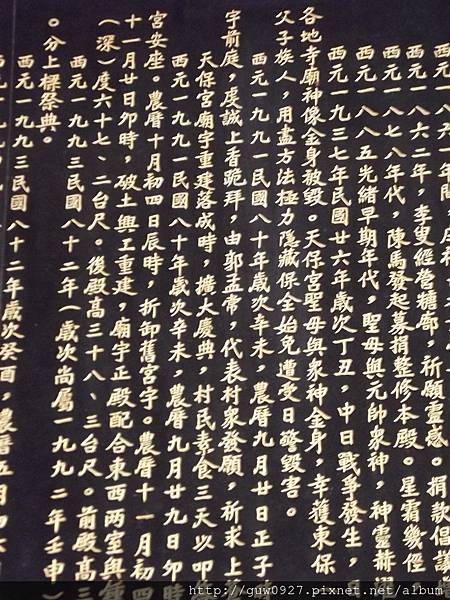 西元一八六一年間，庄
西元一八六二年，李叟經營糖廍，祈願靈感。捐款倡議
西元一八七八年代，陳馬發起募捐整修本殿。星霜幾經
西元一八八五光緒早期年代，聖母與元帥眾神，神靈赫
西元一九三七年民國廿六年歲次丁丑，中日戰爭發生，
各地寺廟神像金身被毀。天保宮聖母與眾神金身，幸獲東保
父子族人，用盡方法極力隱藏保全始免遭受日警毀害。
西元一九九一民國八十年歲次辛未，農曆九月廿日正子時
宇前庭，虔誠上香跪拜，由郭孟常，代表村眾發願，祈求上
天保宮廟宇重建落成時，擴大慶典，村民素食三天以叩
西元一九九一民國八十年歲次辛未，農曆九月廿九日卯時
宮安座。農曆十月初四日辰時，拆卸舊宮宇。農曆十一月初四
十一月廿日卯時，破土興工重建，廟宇正殿配合東西兩室與鐘
（深）度六十七、二台尺。後殿高三十八、三台尺。前殿高三
西元一九九三民國八十二年（歲次尚屬一九九二年壬申）
。分上樑祭典。
西元一九九三民國八十二年歲次癸酉，農曆五月初六
http://guw0927.pixnet.net/album